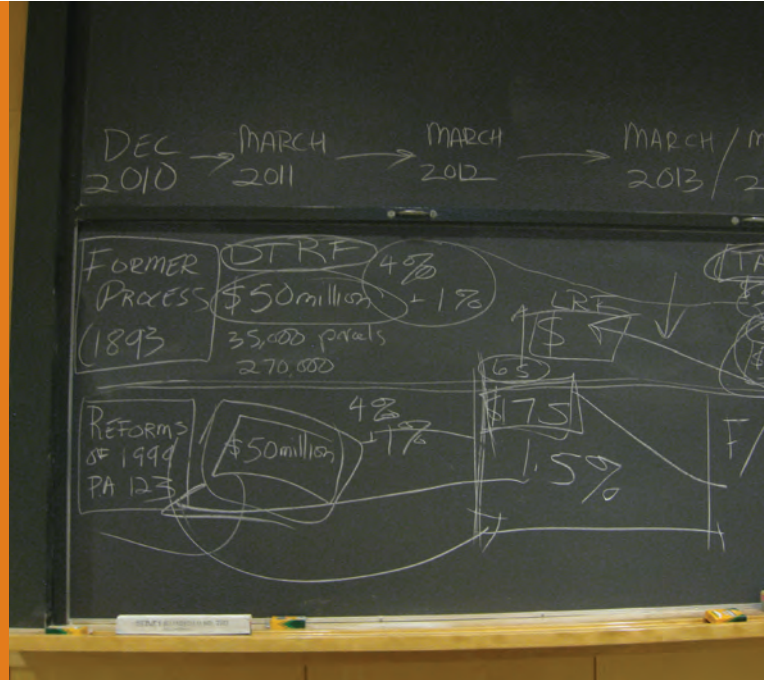 DEC 2010 → MARCH 2011 → MARCH 2012 → MARCH 2013 /
FORMER PROCESS (1893
DTRF
$50million
4%
+1%
35,000 parcels
270,000
LRF
$
65
REFORMS
OF 1999
P.A 123
$50million
4%
+1%
$175
1.5%
F/